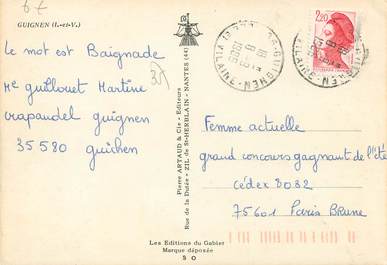 6€
GUIGNEN (I.-et-V.)
Le mot est Baignade
Me guillouet Martine
trapaudel guignen
35580 guichen
35
Pierre ARTAUD & Cie - Editeurs
Rue de la Dutée - ZIL de St-HERBLAIN - NANTES (44)
35-GUIGNEN
ILLE ET VILAINE
2,20
Femme actuelle
grand concours gagnant de l'été
cédex 8082
75601 Paris Brune
Les Editions du Gabier
Marque déposée
S O